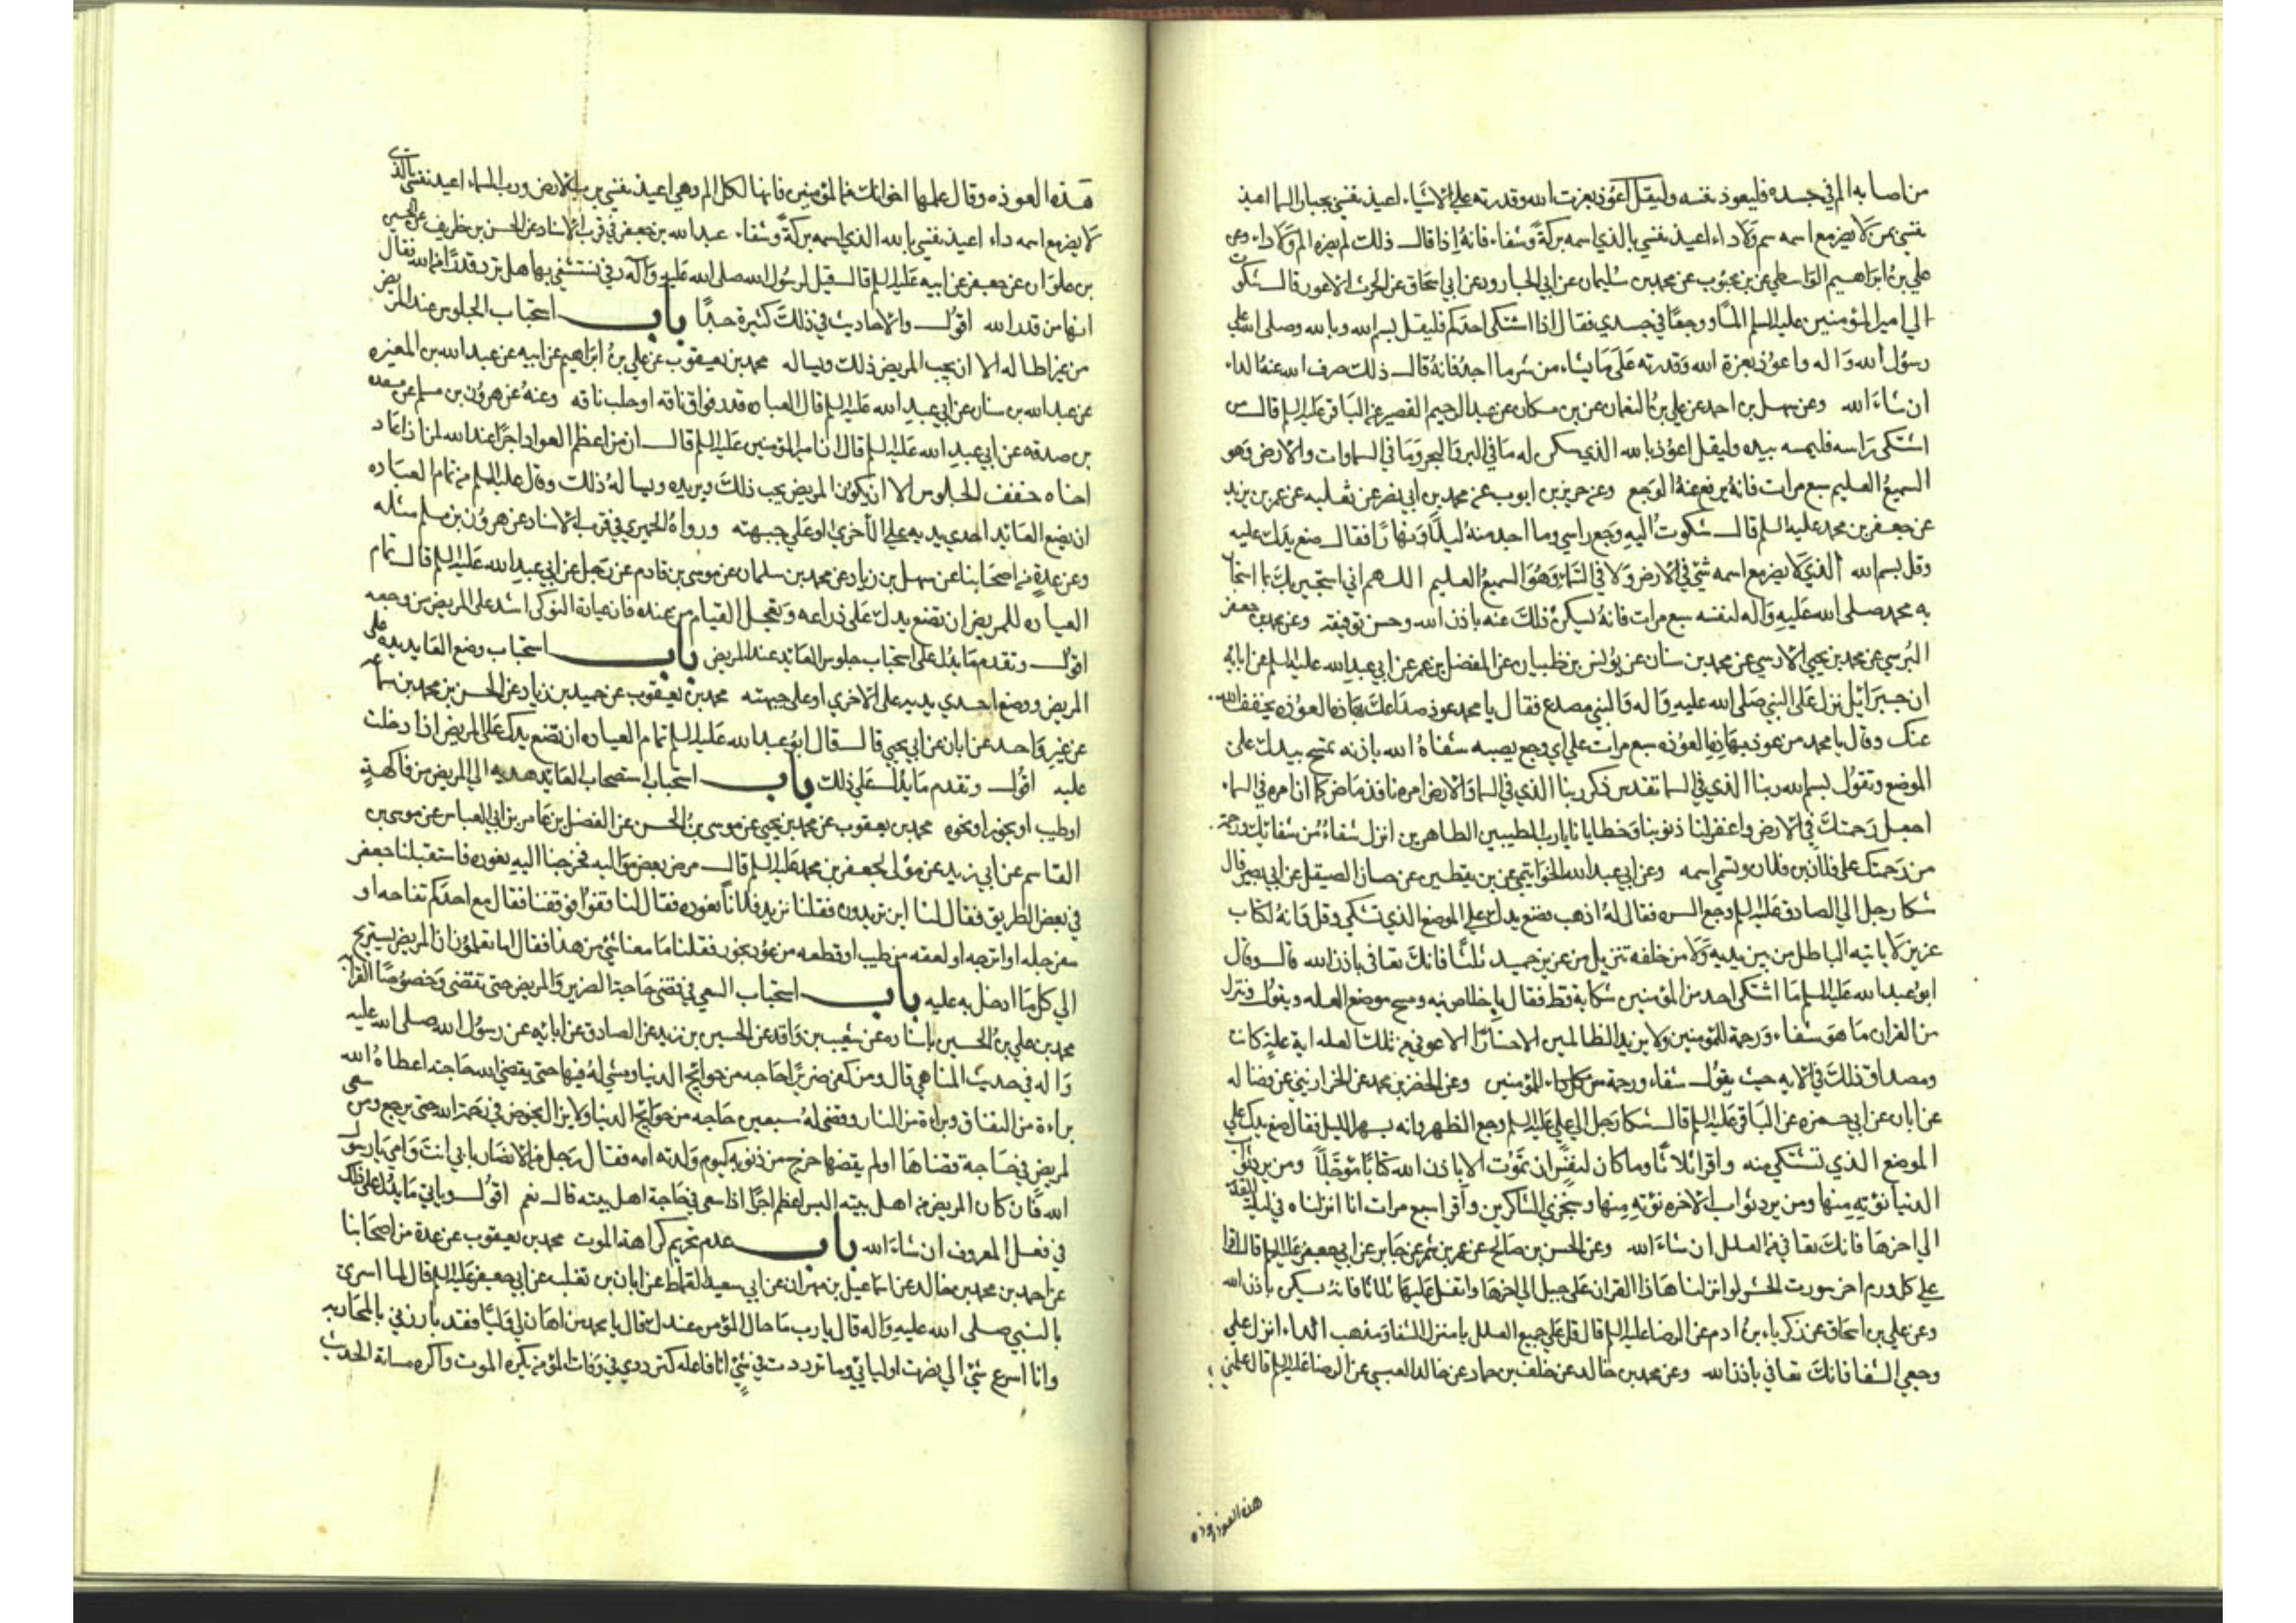 من اصابه الم في جسده فليعوذ نفسه وليقل اعوذ بعزت الله وقدرته على الاشياء اعيذ نفسي بجبار السما اعيذ
نفسي بمن لا يضر مع اسمه سم ولا داء اعيذ نفسي بالذي اسمه بركة وشفاء فانه اذا قال ذلك لم يضره الم ولا داء وعن
علي بن ابراهيم الواسطي عن بن محبوب عن محمد بن سليمان عن ابي الجارود عن ابي اسحاق عن الحرث الاعور قال شكوت
الي امير المؤمنين عليه السلم الما ووجعا في جسدي فقال اذا اشتكى احدكم فليقل بسم الله وبالله وصلى الله علي
رسول الله واله واعوذ بعزة الله وقدرته على ما يشاء من شر ما اجد فانه قال ذلك صرف الله عنه الداء
ان شاء الله وعن سهل بن احمد عن علي بن النعمان عن بن مسكان عن عبد الرحيم القصير عن الباقر عليه السلم قال من
اشتكى راسه فليمسه بيده وليقل اعوذ بالله الذي سكن له ما في البر والبحر وما في السماوات والارض وهو
السميع العليم سبع مرات فانه يرفع عنه الوجع وعن حريز بن ايوب عن محمد بن ابي نصر عن ثعلبه عن عمر بن يزيد
عن جعفر بن محمد عليه السلم قال شكوت اليه وجع راسي وما اجد منه ليلا ونهارا فقال ضع يدك عليه
وقل بسم الله الذي لا يضر مع اسمه شي في الارض ولا في السماء وهو السميع العليم اللهم اني استجير بك بما استجار
به محمد صلى الله عليه واله لنفسه سبع مرات فانه يسكن ذلك عنه باذن الله وحسن توفيقه وعن محمد بن جعفر
البرسي عن محمد بن يحيي الارسي عن محمد بن سنان عن يونس بن ظبيان عن المفضل بن عمر عن ابي عبد الله عليه السلم عن ابايه
ان جبرائيل نزل على النبي صلى الله عليه واله والنبي مصدع فقال يا محمد عوذ صداعك بهاذه العوذه يخفف الله
عنك وقال يا محمد من عوذ بهاذه العوذه سبع مرات علي اي وجع يصيبه شفاه الله باذنه تمسح بيدك على
الموضع وتقول بسم الله ربنا الذي في السما تقدس ذكر ربنا الذي في السما والارض امره نافذ ماض كما ان امره في السماء
اجعل رحمتك في الارض واغفر لنا ذنوبنا وخطايانا يا رب الطيبين الطاهرين انزل شفاء من شفائك ورحمة
من رحمتك على فلان بن فلان وتسمي اسمه وعن ابي عبد الله الخواتيمي عن بن يقطين عن حسان الصيقل عن ابي بصير قال
شكا رجل الي الصادق عليه السلم وجع السره فقال له اذهب فضع يدك علي الموضع الذي تشتكي وقل وانه لكتاب
عزيز لا ياتيه الباطل من بين يديه ولا من خلفه تنزيل من عزيز حميد ثلثا فانك تعافى باذن الله قال وقال
ابو عبد الله عليه السلم ما اشتكى احد من المؤمنين شكاية قط فقال باخلاص نيه ومسح موضع العله ويقول وننزل
من القران ما هو شفاء ورحمة للمؤمنين ولا يزيد الظالمين الا خسارا الا عوفي من تلك العله اية علة كانت
ومصداق ذلك في الايه حيث يقول شفاء ورحمة للمؤمنين وعن الخضر بن محمد عن الخرازيني عن فضاله
عن ابان عن ابي حمزه عن الباقر عليه السلم قال شكا رجل الي علي عليه السلم وجع الظهر وانه يسهر الليل فقال ضع يدك علي
الموضع الذي تشتكي منه واقرا ثلاثا وما كان لنفس ان تموت الا باذن الله كتابا مؤجلا ومن يرد ثواب
الدنيا نؤته منها ومن يرد ثواب الاخره نؤته منها وسنجزي الشاكرين واقرا سبع مرات انا انزلناه في ليلة القدر
الي اخرها فانك تعافى من العلل ان شاء الله وعن الحسن بن صالح عن عمر بن شمر عن جابر عن ابي جعفر عليه السلم قال اقرا
علي كل ورم اخر سورت الحشر لو انزلنا هاذا القران على جبل الي اخرها واتفل عليها ثلاثا فانه يسكن باذن الله
وعن علي بن اسحاق عن زكرياء بن ادم عن الرضا عليه السلم قال قل علي جميع العلل يا منزل الشفا ومذهب الداء انزل علي
وجعي الشفا فانك تعافى باذن الله وعن محمد بن خالد عن خلف بن حماد عن خالد العبسي عن الرضا عليه السلم قال علمني
هذه العوذه
هذه العوذه وقال علمها اخوانك من المؤمنين فانها لكل الم وهي اعيذ نفسي برب الارض ورب السماء اعيذ نفسي بالذي
لا يضر مع اسمه داء اعيذ نفسي بالله الذي اسمه بركة وشفاء عبد الله بن جعفر في قرب الاسناد عن الحسن بن ظريف عن الحسين
بن علوان عن جعفر عن ابيه عليه السلم قال قيل لرسول الله صلى الله عليه واله رقى نستشفي بها هل ترد قدرا من الله فقال
انها من قدر الله اقول والاحاديث في ذلك كثيرة جدا باب استحباب الجلوس عند المريض
من غير اطاله الا ان يحب المريض ذلك ويساله محمد بن يعقوب عن علي بن ابراهيم عن ابيه عن عبد الله بن المغيره
عن عبد الله بن سنان عن ابي عبد الله عليه السلم قال العياده قدر فواق ناقه او حلب ناقه وعنه عن هرون بن مسلم عن مسعده
بن صدقه عن ابي عبد الله عليه السلم قال ان امير المؤمنين عليه السلم قال ان من اعظم العواد اجرا عند الله لمن اذا عاد
اخاه خفف الجلوس الا ان يكون المريض يحب ذلك ويريده ويساله ذلك وقال عليه السلم من تمام العياده
ان يضع العائد احدي يديه على الأخري او على جبهته ورواه الحميري في قرب الاسناد عن هرون بن مسلم مثله
وعن عدة من اصحابنا عن سهل بن زياد عن محمد بن سلمان عن موسى بن قادم عن رجل عن ابي عبد الله عليه السلم قال تمام
العياده للمريض ان تضع يدك على ذراعه وتعجل القيام من عنده فان عيادة النوكى اشد على المريض من وجعه
اقول وتقدم ما يدل على استحباب جلوس العائد عند المريض باب استحباب وضع العايد يده على
المريض ووضع احدي يديه على الاخري او على جبهته محمد بن يعقوب عن حميد بن زياد عن الحسن بن محمد بن سماعه
عن غير واحد عن ابان عن ابي يحيي قال قال ابو عبد الله عليه السلم تمام العياده ان تضع يدك على المريض اذا دخلت
عليه اقول وتقدم ما يدل على ذلك باب استحباب استصحاب العائد هديه الي المريض من فاكهة
او طيب او بخور او نحوه محمد بن يعقوب عن محمد بن يحيي عن موسى بن الحسن عن الفضل بن عامر بن ابي العباس عن موسى بن
القاسم عن ابي زيد عن مولى لجعفر بن محمد عليه السلم قال مرض بعض مواليه فخرجنا اليه نعوده فاستقبلنا جعفر
في بعض الطريق فقال لنا اين تريدون فقلنا نريد فلانا نعوده فقال لنا قفوا فوقفنا فقال مع احدكم تفاحه او
سفرجله او اترجه او لعقه من طيب او قطعه من عود بخور فقلنا ما معنا شي من هذا فقال اما تعلمون ان المريض يستريح
الي كل ما ادخل به عليه باب استحباب السعي في قضى حاجة الضرير والمريض حتى تقضى وخصوصا القرابه
محمد بن علي بن الحسين باسناده عن شعيب بن واقد عن الحسين بن زيد عن الصادق عن ابايه عن رسول الله صلى الله عليه
واله في حديث المناهي قال ومن كفى ضريرا حاجه من حوائج الدنيا ومشى له فيها حتى يقضي الله حاجته اعطاه الله
براءة من النفاق وبراءة من النار وقضى له سبعين حاجه من حوائج الدنيا ولا يزال يخوض في رحمة الله حتى يرجع ومن سعى
لمريض في حاجة قضاها او لم يقضها خرج من ذنوبه كيوم ولدته امه فقال رجل من الانصار بابي انت وامي يا رسول
الله فان كان المريض من اهل بيته اليس اعظم اجرا اذا سعى في حاجة اهل بيته قال نعم اقول وياتي ما يدل على ذلك
في فعل المعروف ان شاء الله باب عدم تحريم كراهة الموت محمد بن يعقوب عن عدة من اصحابنا
عن احمد بن محمد بن خالد عن اسماعيل بن مهران عن ابي سعيد القماط عن ابان بن تغلب عن ابي جعفر عليه السلم قال لما اسرى
بالنبي صلى الله عليه واله قال يا رب ما حال المؤمن عندك قال يا محمد من اهان لي وليا فقد بارزني بالمحاربه
وانا اسرع شي الي نصرت اوليائي وما ترددت في شي انا فاعله كترددي في وفات المؤمن يكره الموت واكره مسائة الحديث